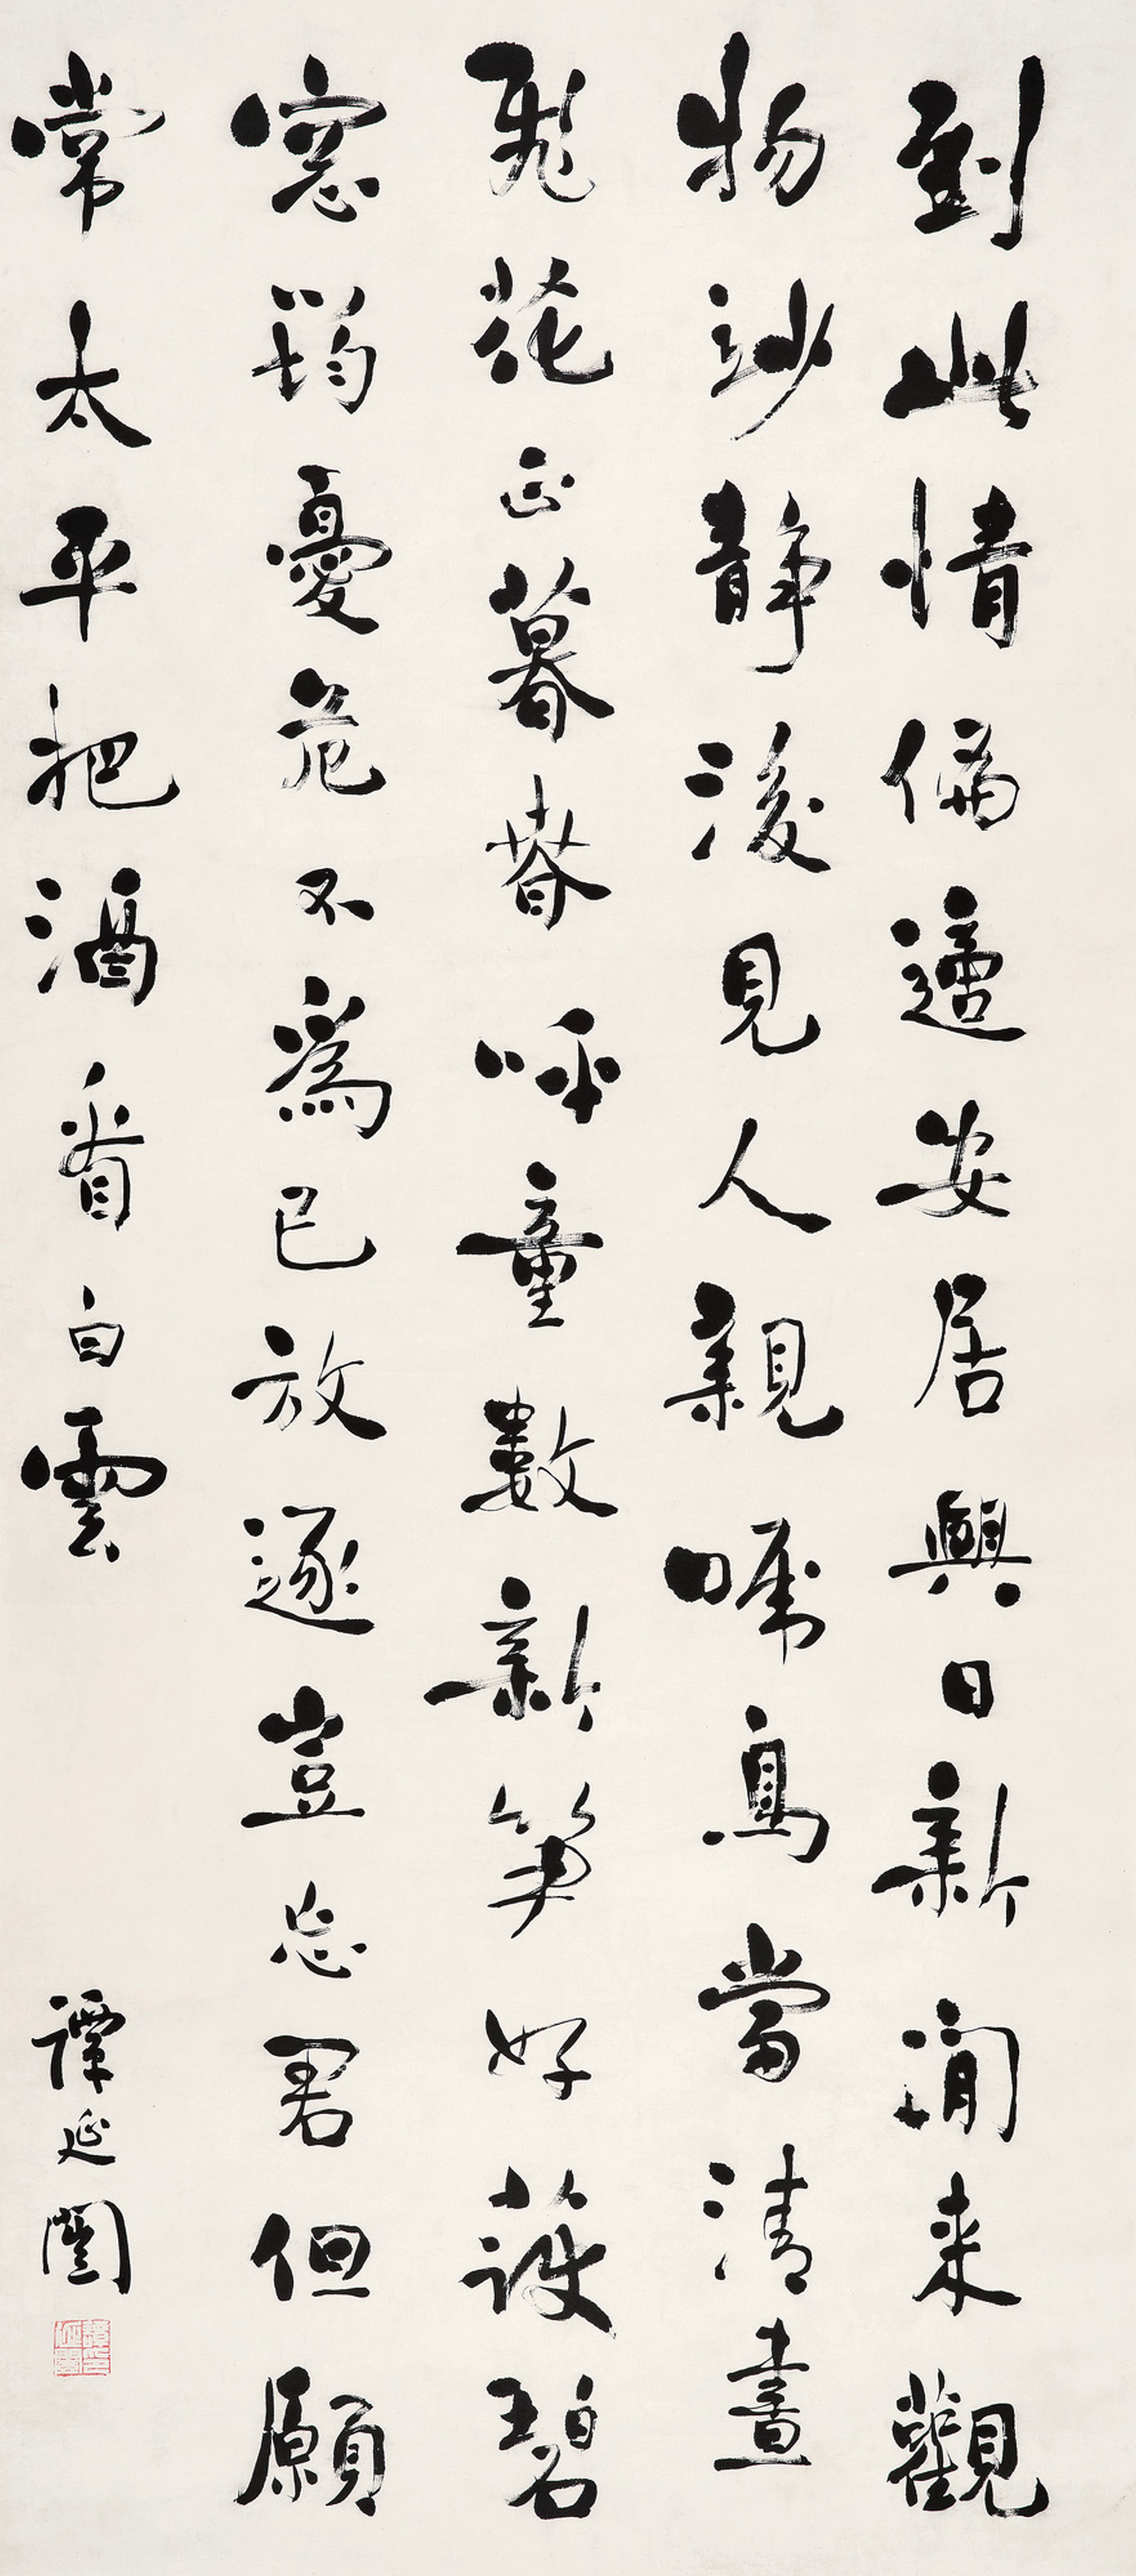 到此情偏適安居興日新閒来觀
物妙靜後見人親啼鳥當清晝
飛花正暮春呼童數新笋好護碧
窓筠憂危不為已放逐豈忘君但願
常太平把酒看白雲
譚延闓